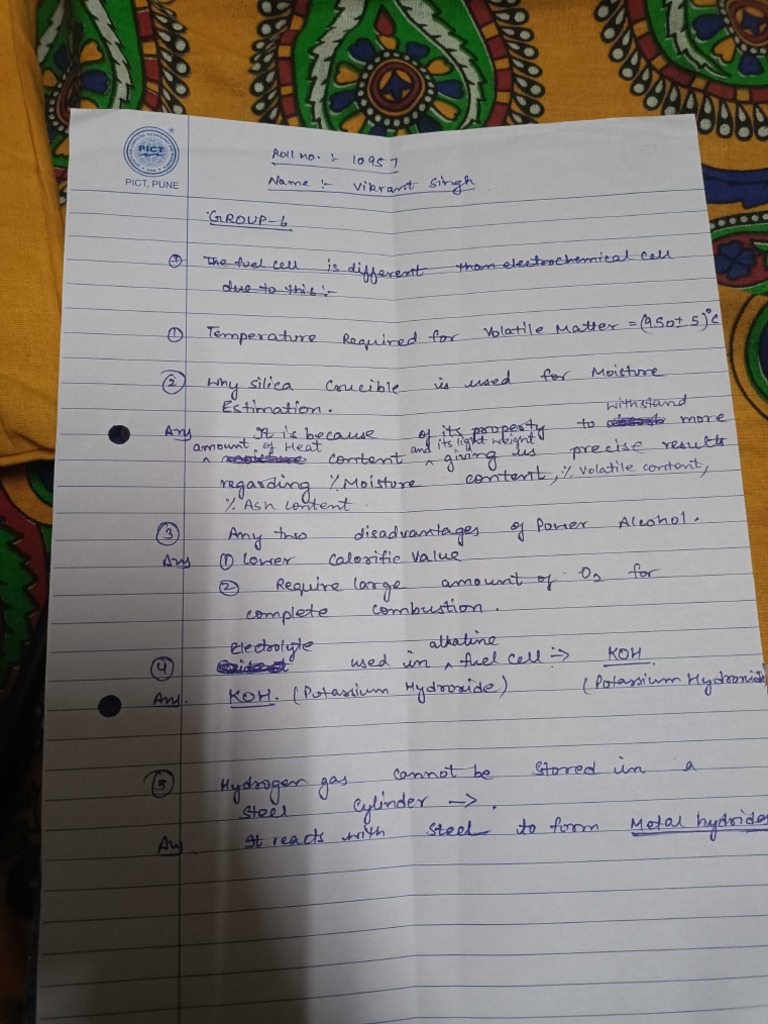 PICT
PICT, PUNE
Roll no. :- 10957
Name :- Vikrant Singh
GROUP-6
① The fuel cell is different than electrochemical cell
due to this :-
① Temperature Required for Volatile Matter = (950± 5)°C
② Why silica crucible is used for Moisture
Estimation.
Ans It is because of its property to withstand more
amount of Heat content and its light weight giving us precise results
regarding % Moisture content, % Volatile content,
% Ash content.
③ Any two disadvantages of Power Alcohol.
Ans ① lower calorific value
② Require large amount of O2 for
complete combustion.
④ Electrolyte used in alkaline fuel cell :-> KOH
(Potassium Hydroxide)
Ans. KOH. (Potassium Hydroxide)
⑤ Hydrogen gas cannot be stored in a
steel cylinder ->.
Ans It reacts with steel to form Metal hydrides